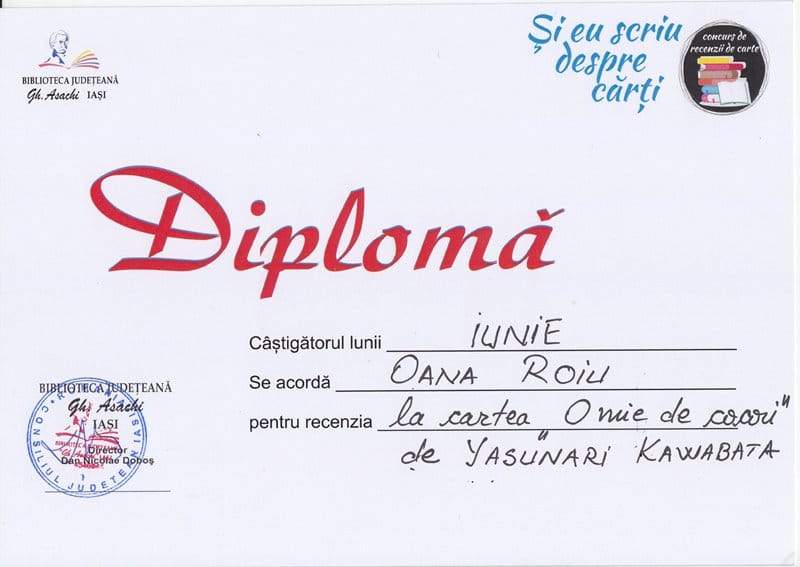 BIBLIOTECA JUDEȚEANĂ
Gh. Asachi IAȘI
Și eu scriu
despre
cărți
concurs de
recenzii de carte
Diplomă
Câștigătorul lunii IUNIE
Se acordă OANA ROIU
pentru recenzia la cartea "O mie de cocori"
de YASUNARI KAWABATA
BIBLIOTECA JUDEȚEANĂ
Gh. Asachi
IAȘI
Director
Dan Nicolae Doboș
CONSILIUL JUDEȚEAN IAȘI